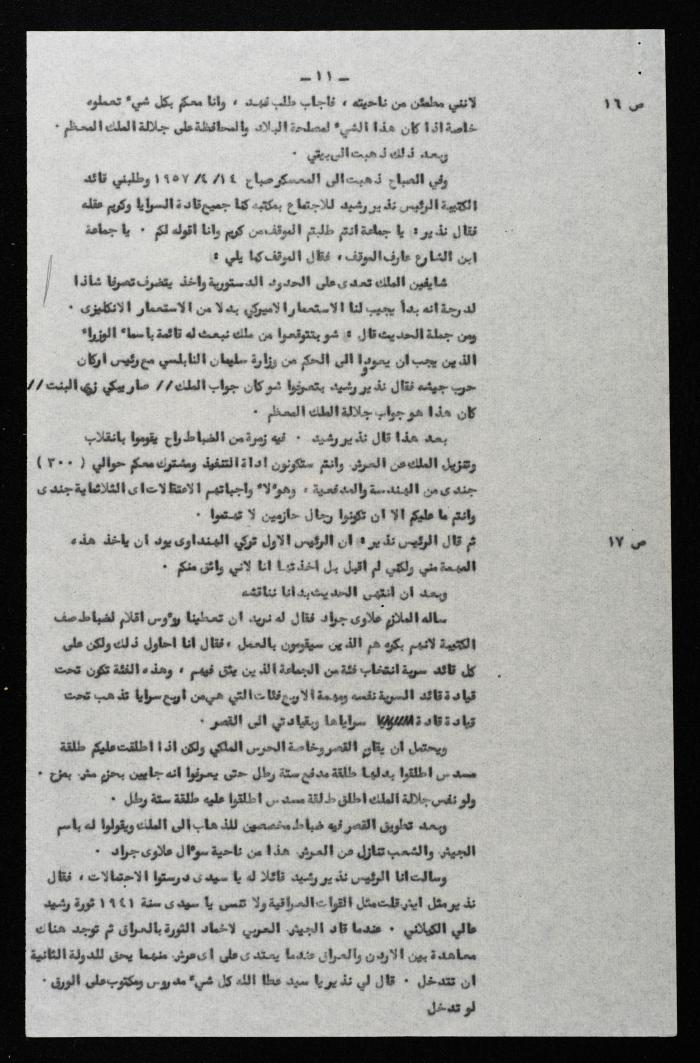 — ١١ —
ص ١٦
لانني مطمئن من ناحيته ، فاجاب طلب فهد ، وانا معكم بكل شيء تعملوه
خاصة اذا كان هذا الشيء لمصلحة البلاد والمحافظة على جلالة الملك المعظم .
وبعد ذلك ذهبت الى بيتي .
وفي الصباح ذهبت الى المعسكر صباح ١٤/ ٤/ ١٩٥٧ وطلبني قائد
الكتيبة الرئيس نذير رشيد للاجتماع بمكتبه كنا جميع قادة السرايا وكريم عقله
فقال نذير : يا جماعة انتم طلبتم الموقف من كريم وانا اقوله لكم . يا جماعة
ابن الشارع عارف الموقف ، فقال الموقف كما يلي :
شايفين الملك تعدى على الحدود الدستورية واخذ يتصرف تصرفا شاذا
لدرجة انه بدأ يجيب لنا الاستعمار الاميركي بدلا من الاستعمار الانكليزى .
ومن جملة الحديث قال : شو بتتوقعوا من ملك نبعث له قائمة باسماء الوزراء
الذين يجب ان يعودوا الى الحكم من وزارة سليمان النابلسي مع رئيس اركان
حرب جيشه فقال نذير رشيد بتعرفوا شو كان جواب الملك // صار يبكي زي البنت //
كان هذا هو جواب جلالة الملك المعظم .
بعد هذا قال نذير رشيد . فيه زمرة من الضباط راح يقوموا بانقلاب
وتنزيل الملك عن العرش وانتم ستكونون اداة التنفيذ ومشترك معكم حوالي ( ٣٠٠ )
جندى من الهندسة والمدفعية ، وهؤلاء واجباتهم الاعتقالات اى الثلاثماية جندى
وانتم ما عليكم الا ان تكونوا رجال حازمين لا تهتموا .
ص ١٧
ثم قال الرئيس نذير : ان الرئيس الاول تركي الهنداوى يود ان ياخذ هذه
المهمة مني ولكني لم اقبل بل اخذتها انا لاني واثق منكم .
وبعد ان انتهى الحديث بدانا نناقشه
ساله الملازم علاوى جراد فقال له نريد ان تعطينا رؤوس اقلام لضباط صف
الكتيبة لانهم بكره هم الذين سيقومون بالعمل ، فقال انا احاول ذلك ولكن على
كل قائد سرية انتخاب فئة من الجماعة الذين يثق فيهم ، وهذه الفئة تكون تحت
قيادة قائد السرية نفسه ومهمة الاربع فئات التي هي من اربع سرايا تذهب تحت
قيادة قادة سراياها وبقيادتي الى القصر .
ويحتمل ان يقاوم القصر وخاصة الحرس الملكي ولكن اذا اطلقت عليكم طلقة
مسدس اطلقوا بدلها طلقة مدفع ستة رطل حتى يعرفوا انه جايين بحزم مش بمزح .
ولو نفس جلالة الملك اطلق طلقة مسدس اطلقوا عليه طلقة ستة رطل .
وبعد تطويق القصر فيه ضباط مخصصين للذهاب الى الملك ويقولوا له باسم
الجيش والشعب تنازل عن العرش هذا من ناحية سؤال علاوى جراد .
وسالت انا الرئيس نذير رشيد قائلا له يا سيدى درستوا الاحتمالات ، فقال
نذير مثل ايش قلت مثل القوات العراقية ولا تنس يا سيدى سنة ١٩٤١ ثورة رشيد
عالي الكيلاني . عندما قاد الجيش العربي لاخماد الثورة بالعراق ثم توجد هناك
معاهدة بين الاردن والعراق عندما يعتدى على اى عرش منهما يحق للدولة الثانية
ان تتدخل . قال لي نذير يا سيد عطا الله كل شيء مدروس ومكتوب على الورق .
لو تدخل